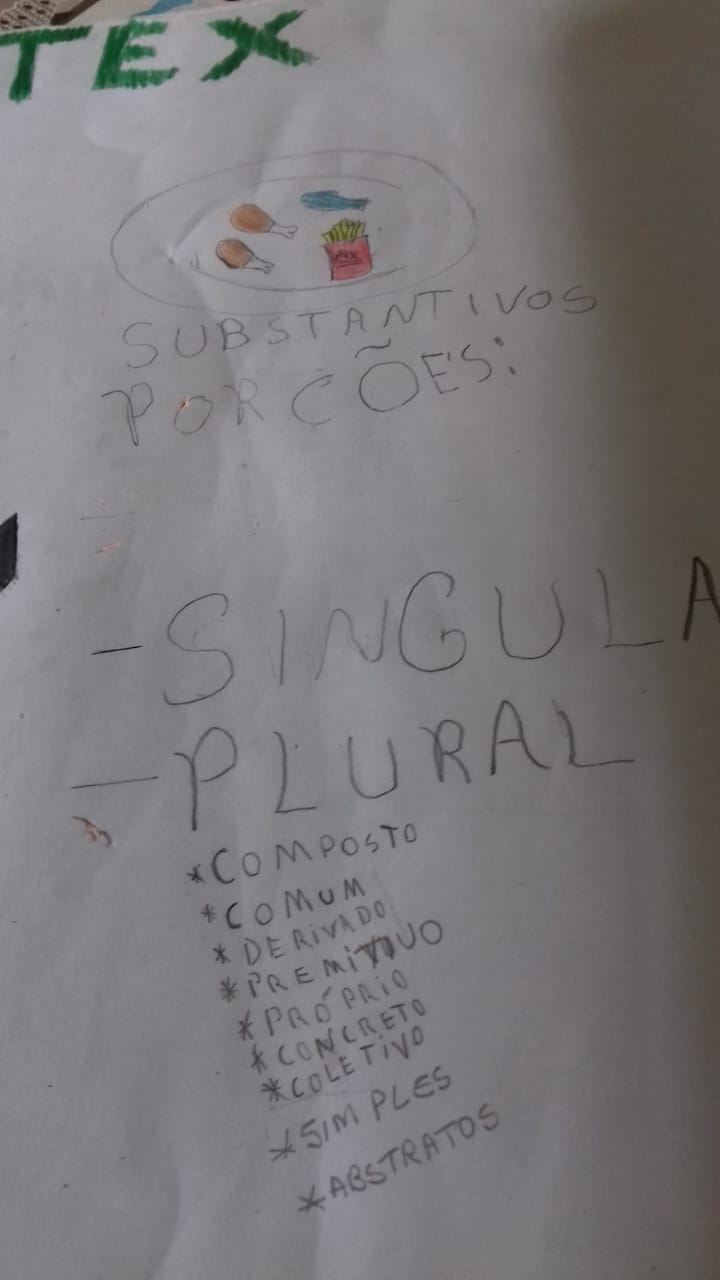 TEX
SUBSTANTIVOS
PORCÕES:
-SINGULA
-PLURAL
*COMPOSTO
*COMUM
*DERIVADO
*PREMITIVO
*PRÓPRIO
*CONCRETO
*COLETIVO
*SIMPLES
*ABSTRATOS